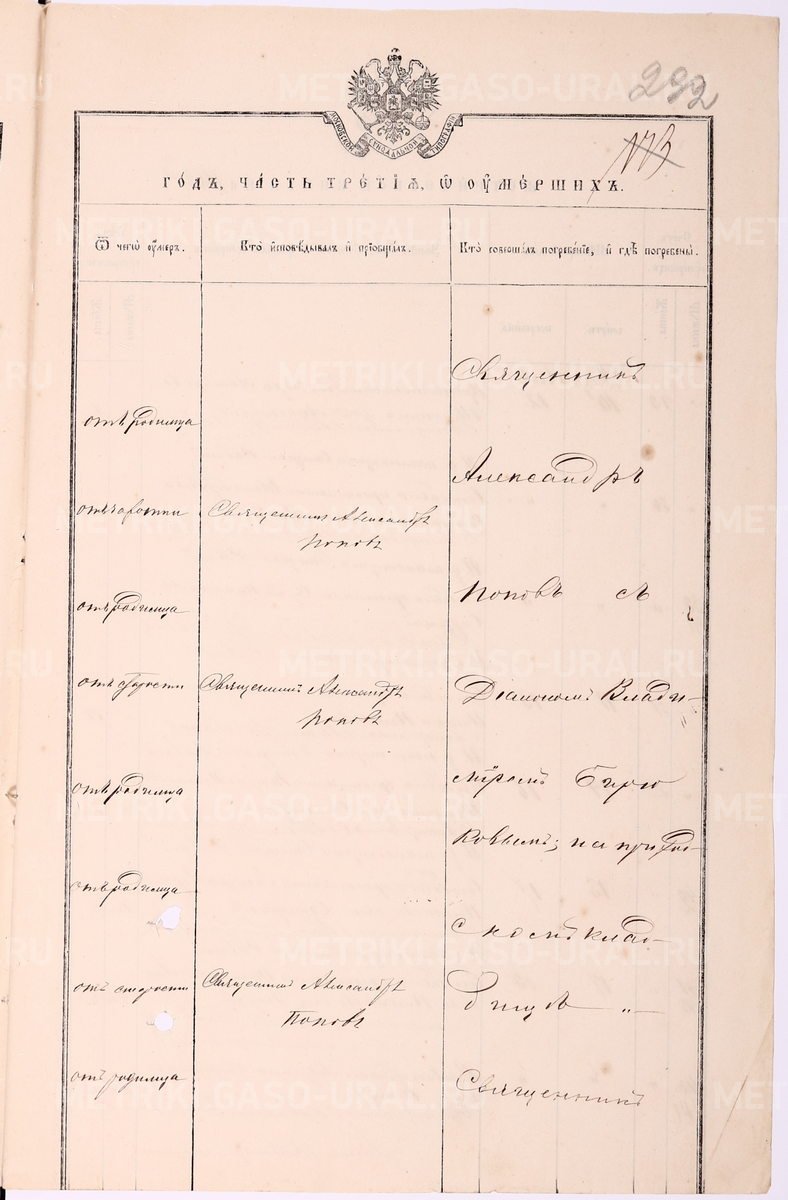 292
МОСКОВСКОЙ СѴНОДАЛЬНОЙ ТИПОГРАФІИ
ГОДЪ, ЧАСТЬ ТРЕТІЯ, Ѿ ОУМЕРШИХЪ.
Ѿ чегѡ оумеръ.
Кто исповѣдывалъ и пріобщалъ.
Кто совершилъ погребеніе, и гдѣ погребены.
Священникъ
отъ родимца
Александръ
Священникъ Александръ
Поповъ
Поповъ съ
отъ родимца
отъ старости
Священникъ Александръ
Поповъ
Діакономъ Влади-
міромъ Бирю
отъ родимца
ковымъ; на приход-
отъ родимца
скомъ клад-
отъ старости
Священникъ Александръ
Поповъ
бищѣ
отъ родимца
Священникъ
METRIKI.GASO-URAL.RU